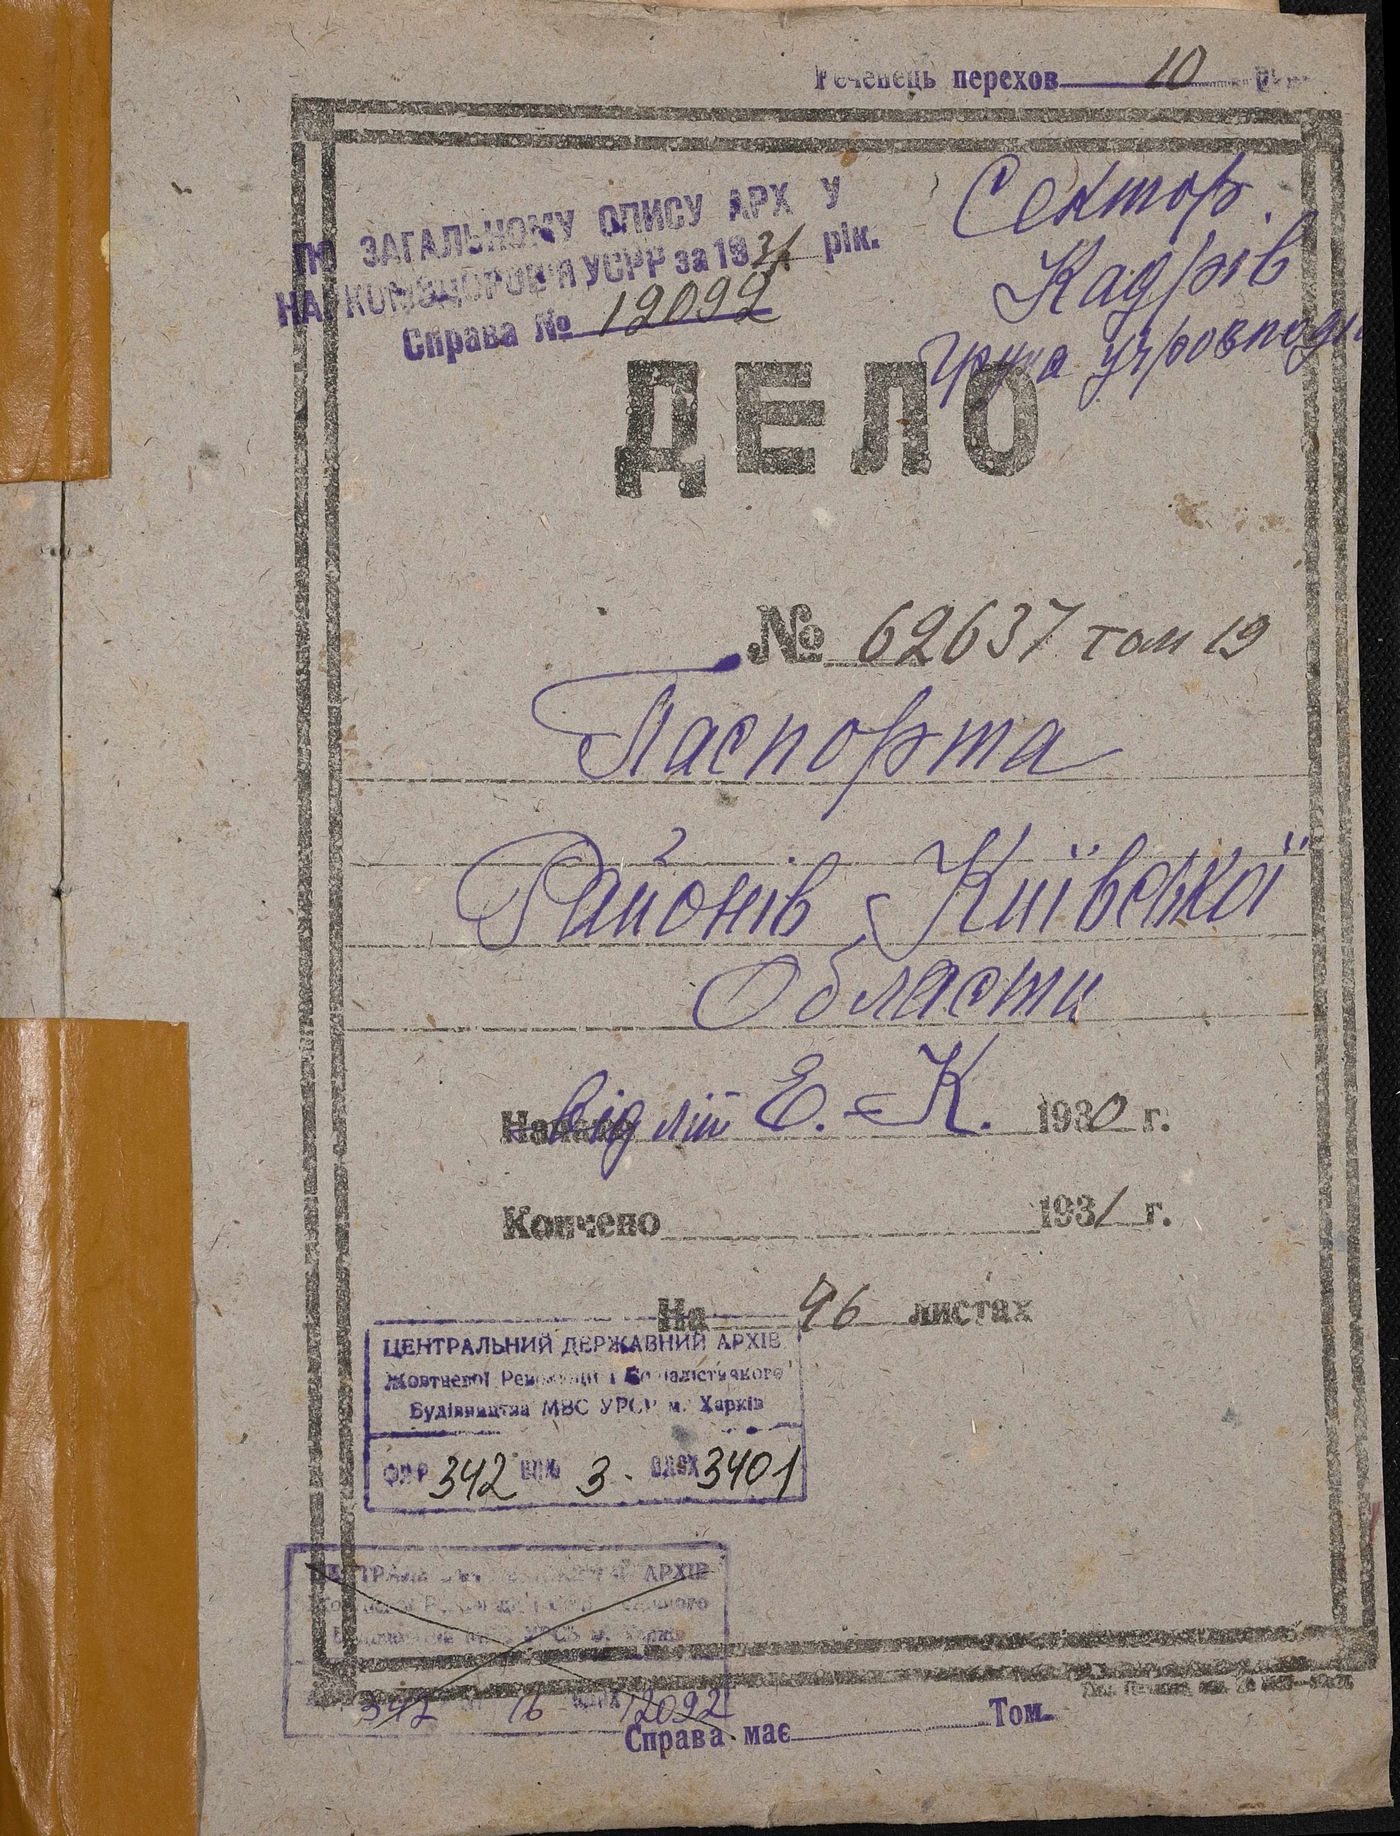 Реченець перехов 10
ПО ЗАГАЛЬНОМУ ОПИСУ АРХ У
НАРКОМЗДОРОВ'Я УСРР за 1931 рік.
Справа № 12092
Сектор
Кадрів
Група
ДЕЛО
№ 62637 том 19
Паспорта
Районів Київської
Области
Начато від літ Е.-К. 1930 г.
Кончено 1931 г.
На 46 листах
ЦЕНТРАЛЬНИЙ ДЕРЖАВНИЙ АРХІВ
Жовтневої Революції і Соціалістичного
Будівництва МВС УРСР м. Харків
342 3. 3401
АРХІВ
УРСР м.
342 16 12092
Справа має Том